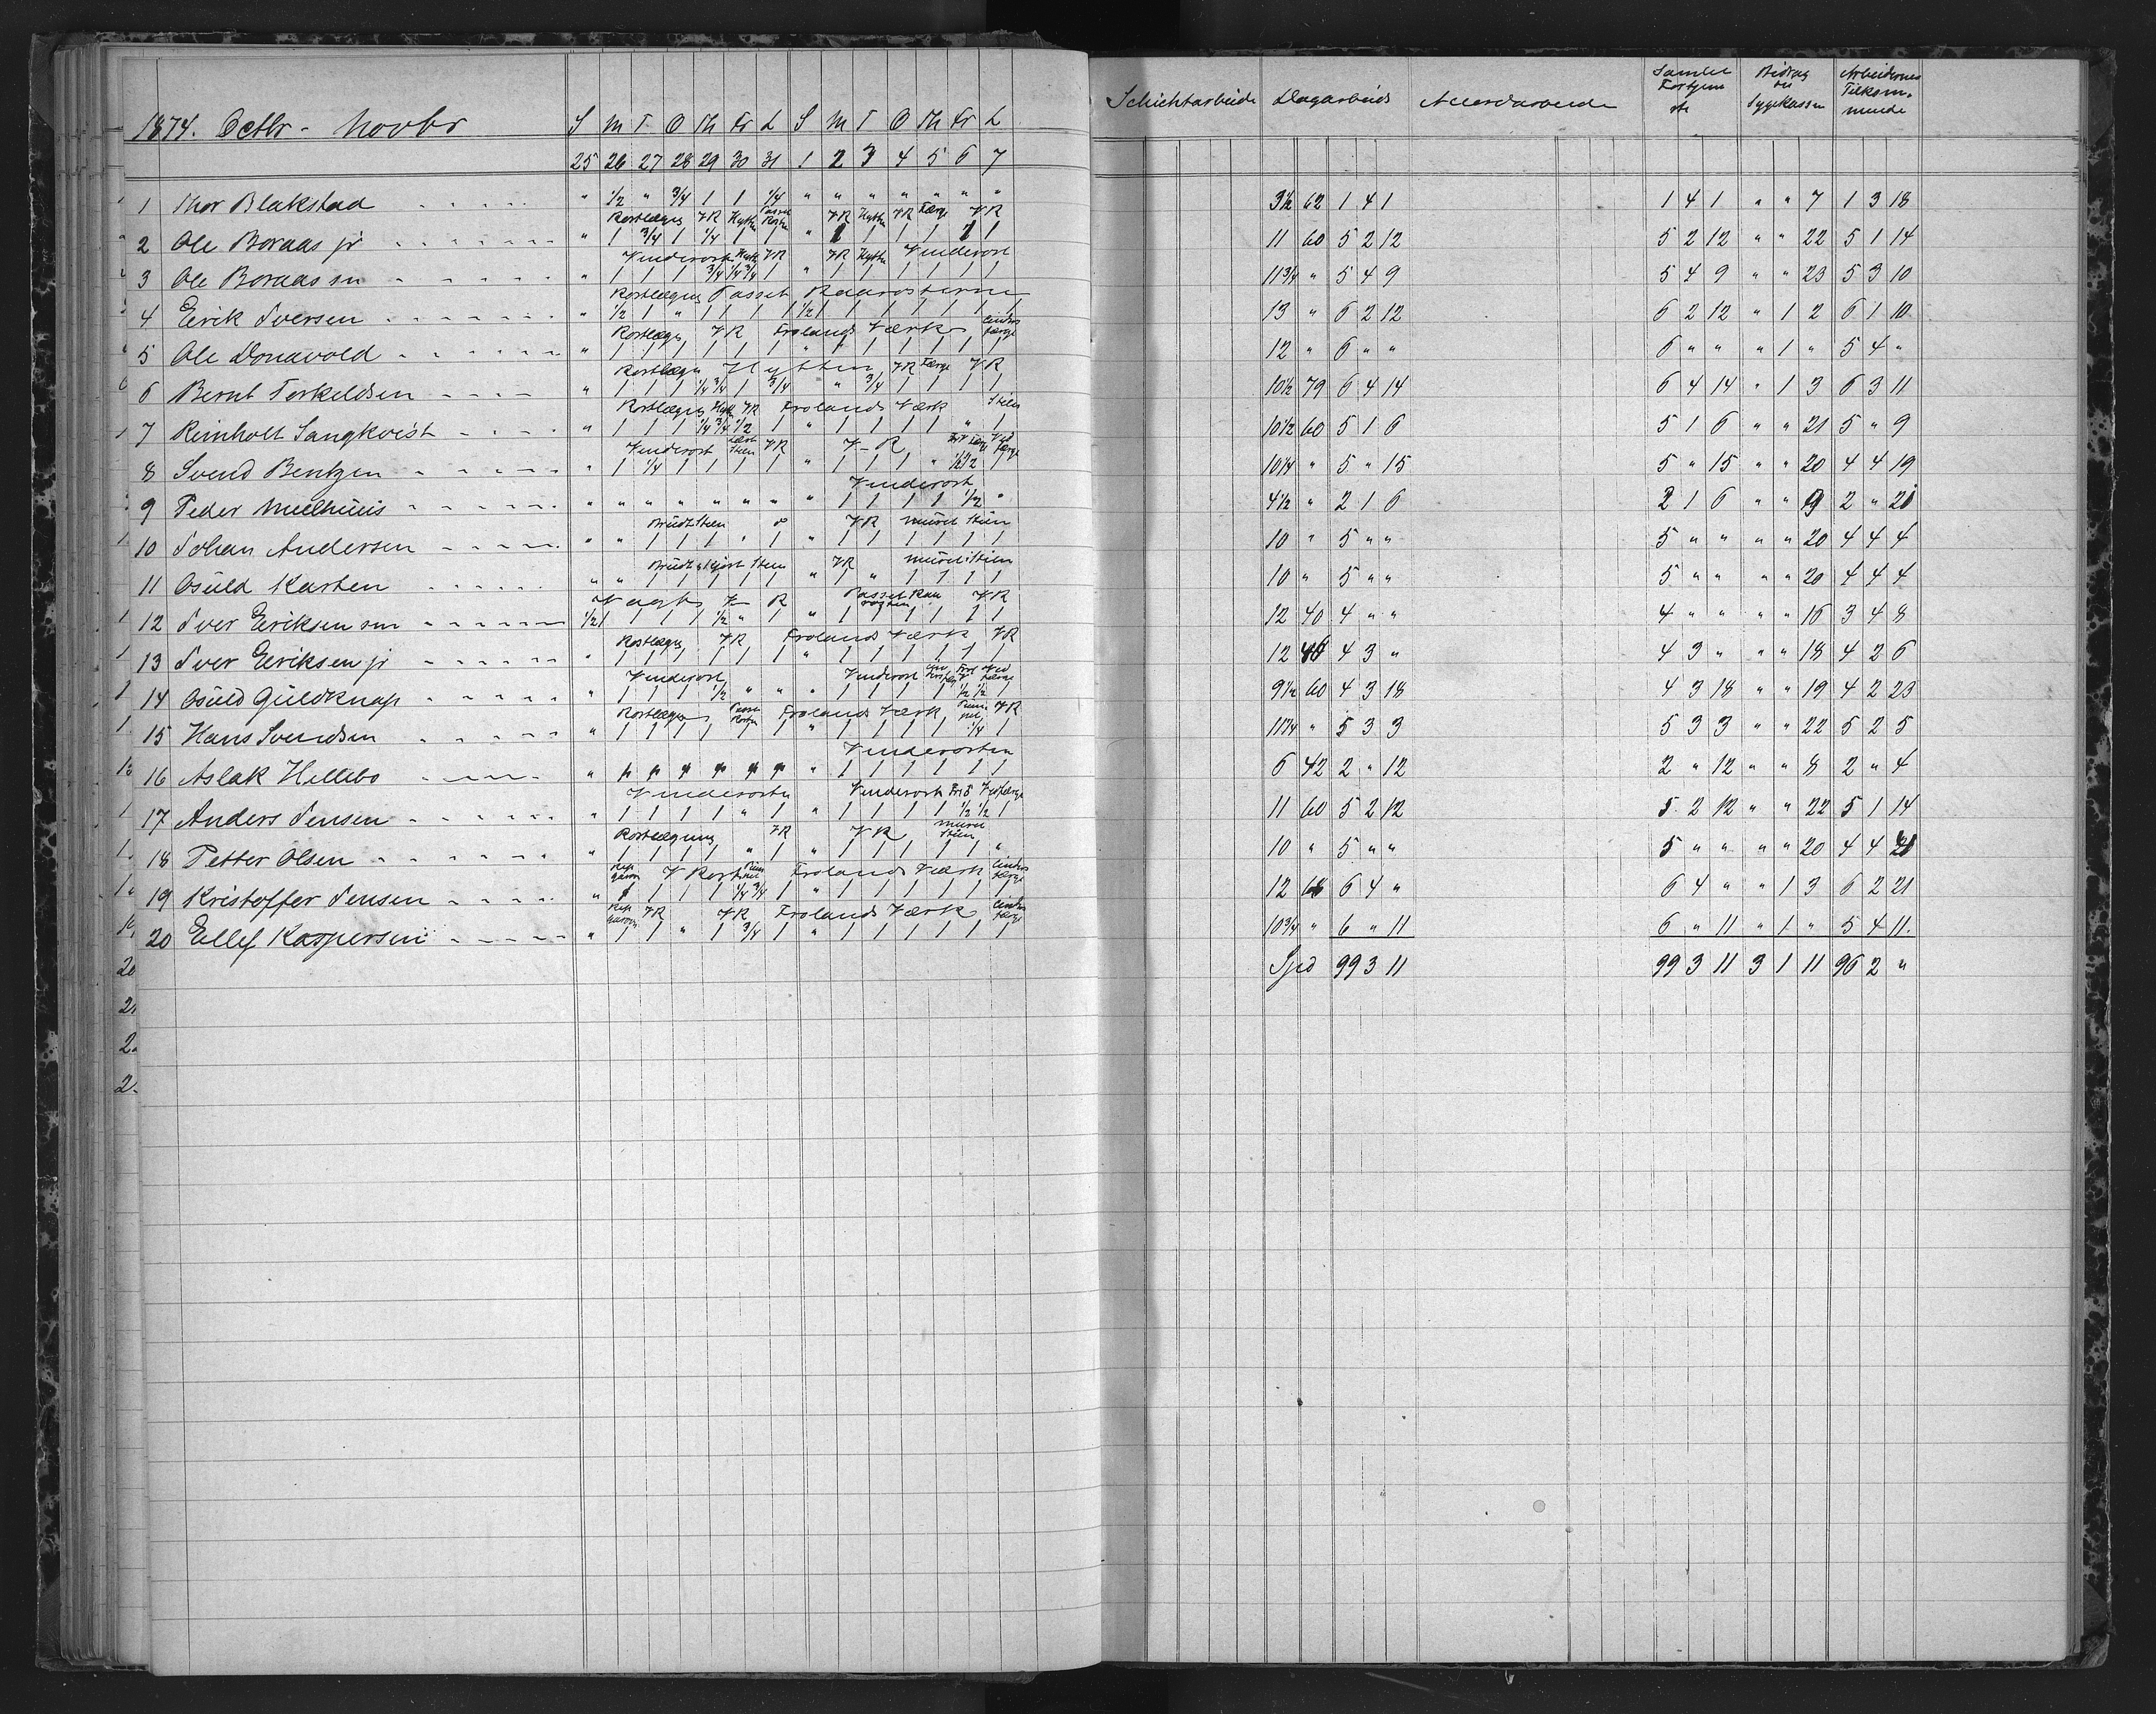 1874. Octbr - Novbr S M T O Th Fr L S M T O Th Fr L Schichtarbeide Dagarbeids Accordarbeide Samlet Fortjeneste Bidrag til Sygekassen Arbeidernes Tilkommende
25 26 27 28 29 30 31 1 2 3 4 5 6 7
1 Thor Blakstad " 1/2 " 3/4 1 1 1/4 " " " " " " " 3 1/2 62 1 4 1 1 4 1 " " 7 1 3 18
Rostlægng VR Hytte VR Hytte VR Færge VR
2 Ole Boraas jr " 1 3/4 1 1/4 1 1 " 1 1 1 1 1 1 11 60 5 2 12 5 2 12 " " 22 5 1 14
Venderost Hytte VR VR Hytte Venderost
3 Ole Boraas sn " 1 1 1 3/4 1/4 3/4 1 " 1 1 1 1 1 1 11 3/4 " 5 4 9 5 4 9 " " 23 5 3 10
Rostlægng Passet Raarosterne
4 Eirik Iversen " 1/2 1 " 1 1 1 1 1/2 1 1 1 1 1 1 13 " 6 2 12 6 2 12 " 1 2 6 1 10
Rostlægn VR Frolands Værk Cinders færge
5 Ole Donavold " 1 1 1 1 1 1 " 1 1 1 1 1 1 12 " 6 " " 6 " " " 1 " 5 4 "
Rostlægn Hytten VR Færge VR
6 Bernt Terkeldsen " 1 1 1 1/4 3/4 1 3/4 " 3/4 1 1 1 1 10 1/2 79 6 4 14 6 4 14 " 1 3 6 3 11
Rostlægng Hytt VR Frolands Værk Steen
7 Reinholt Sangkvist " 1 1 1 1/4 3/4 1/2 1 " 1 1 1 1 " 1 10 1/2 60 5 1 6 5 1 6 " " 21 5 " 9
Venderost Steen VR V-R Ved færge
8 Svend Bentzen " 1 1/4 1 1 1 1 " 1 1 1 " 1/2 1/2 1 10 1/4 " 5 " 15 5 " 15 " " 20 4 4 19
Venderost
9 Peder Mælhuus " " " " " " " " 1 1 1 1 1/2 " 4 1/2 " 2 1 6 2 1 6 " " 9 2 " 21
Brudt Steen do VR Muret Steen
10 Johan Andersen " " 1 1 1 " 1 " 1 1 1 1 1 1 10 " 5 " " 5 " " " " 20 4 4 4
Brudt & kjørt Steen VR Muret Steen
11 Osuld Karten " " 1 1 1 1 1 " 1 " 1 1 1 1 10 " 5 " " 5 " " " " 20 4 4 4
Vagt V-R Passet Raarosten VR
12 Iver Eiriksen sen 1/2 1 1 1 1 1/2 " 1 " 1 1 1 1 1 1 12 40 4 " " 4 " " " " 16 3 4 8
Rostlægn VR Frolands Værk VR
13 Iver Eiriksen jr " 1 1 1 1 1 1 " 1 1 1 1 1 1 12 4 3 " 4 3 " " " 18 4 2 6
Venderost Venderost Ved færge
14 Osuld Guldknap " 1 1 1 1/2 " " " 1 1 1 1 1/2 1/2 1 9 1/2 60 4 3 18 4 3 18 " " 19 4 2 23
Rostlægn Frolands Værk VR
15 Hans Svendsen " 1 1 1 1 1 1 " 1 1 1 1 1/4 1 11 1/4 " 5 3 3 5 3 3 " " 22 5 2 5
Venderosten
16 Aslak Hillebo " " " " " " " " 1 1 1 1 1 1 6 42 2 " 12 2 " 12 " " 8 2 " 4
Venderosten Venderost Vedfærge
17 Anders Jensen " 1 1 1 1 " 1 " 1 1 1 1 1/2 1/2 1 11 60 5 2 12 5 2 12 " " 22 5 1 14
Rostlægning VR VR Muret Steen
18 Petter Olsen " 1 1 1 1 " 1 " 1 1 1 1 1 " 10 " 5 " " 5 " " " " 20 4 4 4
V Rost Frolands Værk Cinders færge
19 Kristoffer Jensen " 1 1 1 1 1/4 3/4 1 " 1 1 1 1 1 1 12 68 6 4 " 6 4 " " 1 3 6 2 21
VR VR Frolands Værk Cinders færge
20 Ellef Kaspersen " 1 1 " 1 3/4 1 " 1 1 1 1 1 1 10 3/4 " 6 " 11 6 " 11 " 1 " 5 4 11
Spd 99 3 11 99 3 11 3 1 11 96 2 "